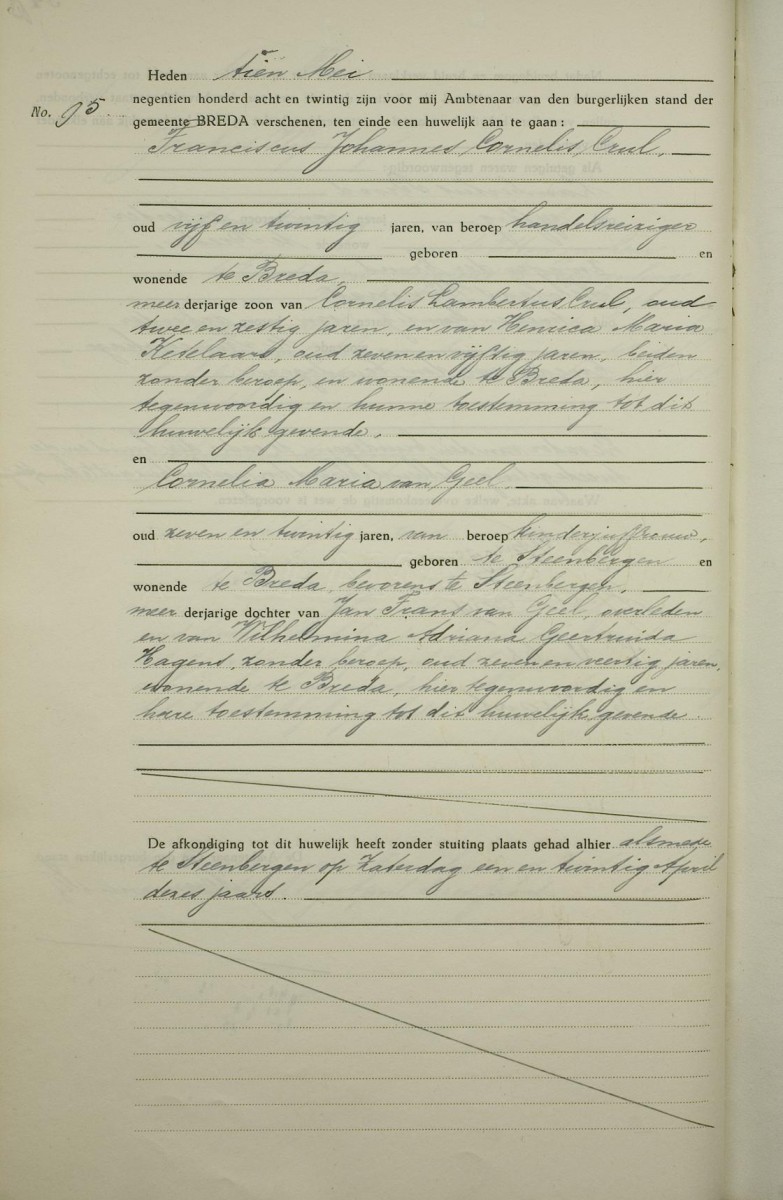 Heden tien Mei
No. 95.
negentien honderd acht en twintig zijn voor mij Ambtenaar van den burgerlijken stand der
gemeente BREDA verschenen, ten einde een huwelijk aan te gaan:
Franciscus Johannes Cornelis Crul,
oud vijf en twintig jaren, van beroep handelsreiziger
geboren en
wonende te Breda,
meer derjarige zoon van Cornelis Lambertus Crul, oud
twee en zestig jaren, en van Henrica Maria
Ketelaars, oud zeven en vijftig jaren, beiden
zonder beroep, en wonende te Breda, hier
tegenwoordig en hunne toestemming tot dit
huwelijk gevende,
en
Cornelia Maria van Geel
oud zeven en twintig jaren, van beroep kinderjuffrouw,
geboren te Steenbergen en
wonende te Breda, bevorens te Steenbergen,
meer derjarige dochter van Jan Frans van Geel, overleden
en van Wilhelmina Adriana Geertruida
Hagens, zonder beroep, oud zeven en veertig jaren,
wonende te Breda, hier tegenwoordig en
hare toestemming tot dit huwelijk gevende.
De afkondiging tot dit huwelijk heeft zonder stuiting plaats gehad alhier alsmede
te Steenbergen op Zaterdag een en twintig April
dezes jaars.